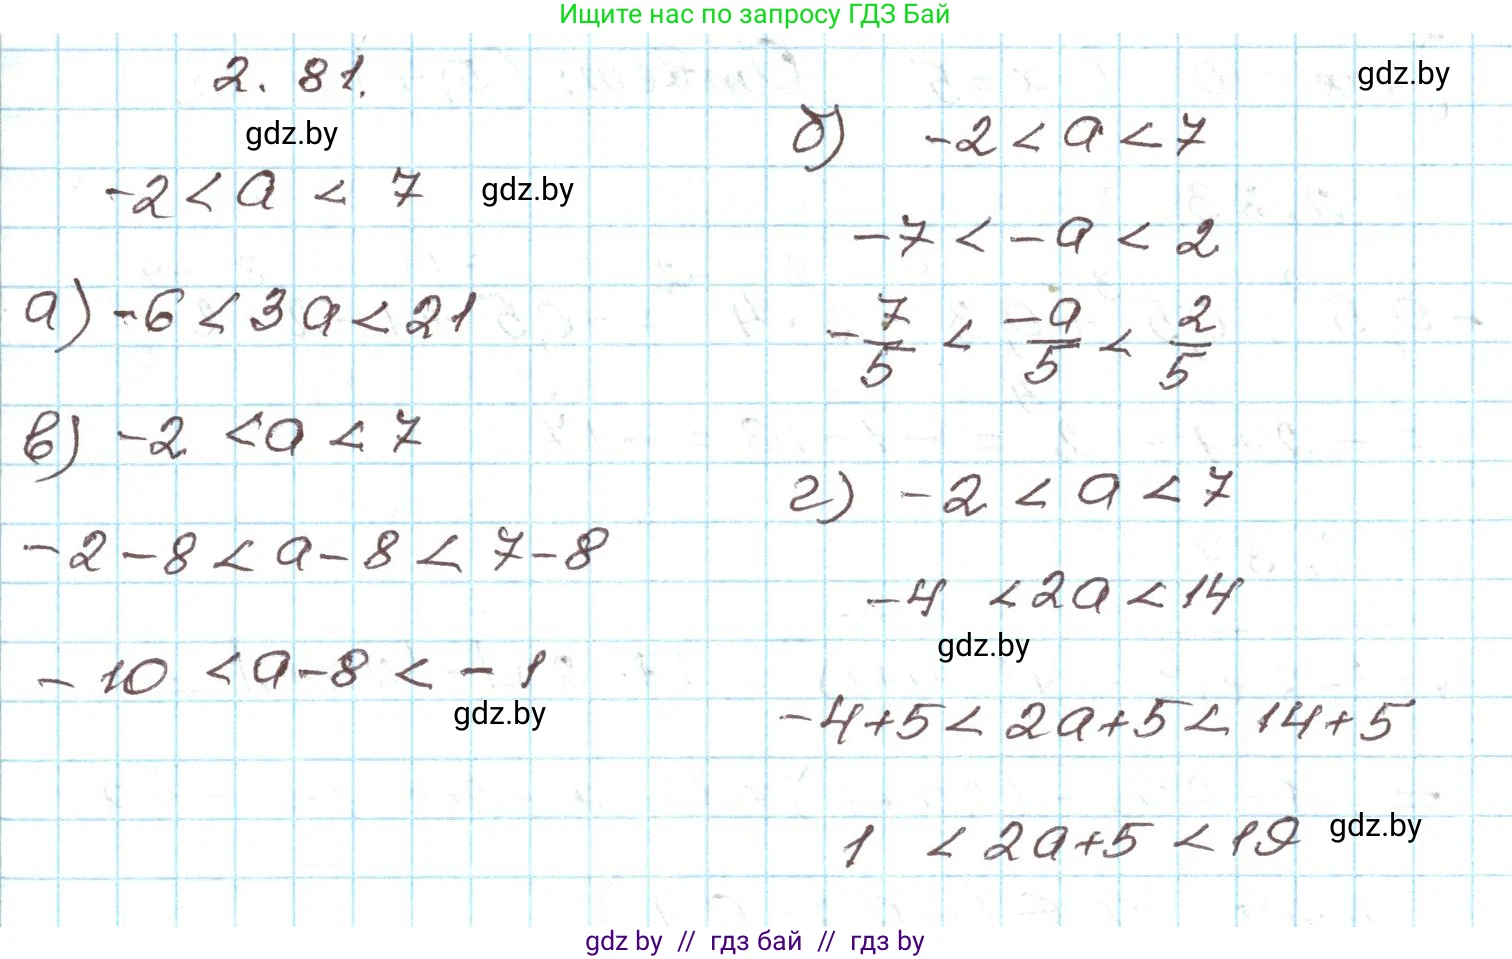 Ищите нас по запросу ГДЗ Бай
2. 81.
gdz.by
gdz.by
-2 < a < 7
gdz.by
а) -6 < 3a < 21
в) -2 < a < 7
-2 - 8 < a - 8 < 7 - 8
-10 < a - 8 < -1
gdz.by
б) -2 < a < 7
-7 < -a < 2
-7/5 < -a/5 < 2/5
г) -2 < a < 7
-4 < 2a < 14
gdz.by
-4+5 < 2a+5 < 14+5
1 < 2a+5 < 19
gdz.by
gdz by // гдз бай // гдз by